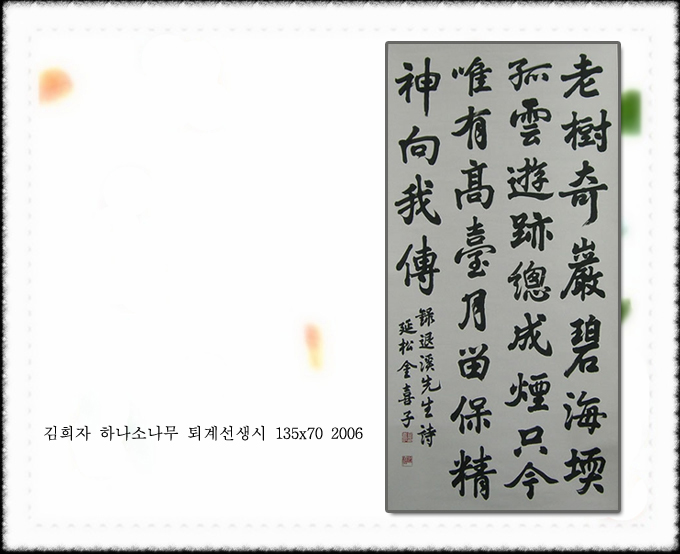 老樹奇巖碧海堧
孤雲遊跡總成煙只今
唯有髙臺月留保精
神向我傳
錄退溪先生詩
延松金喜子
김희자 하나소나무 퇴계선생시 135x70 2006